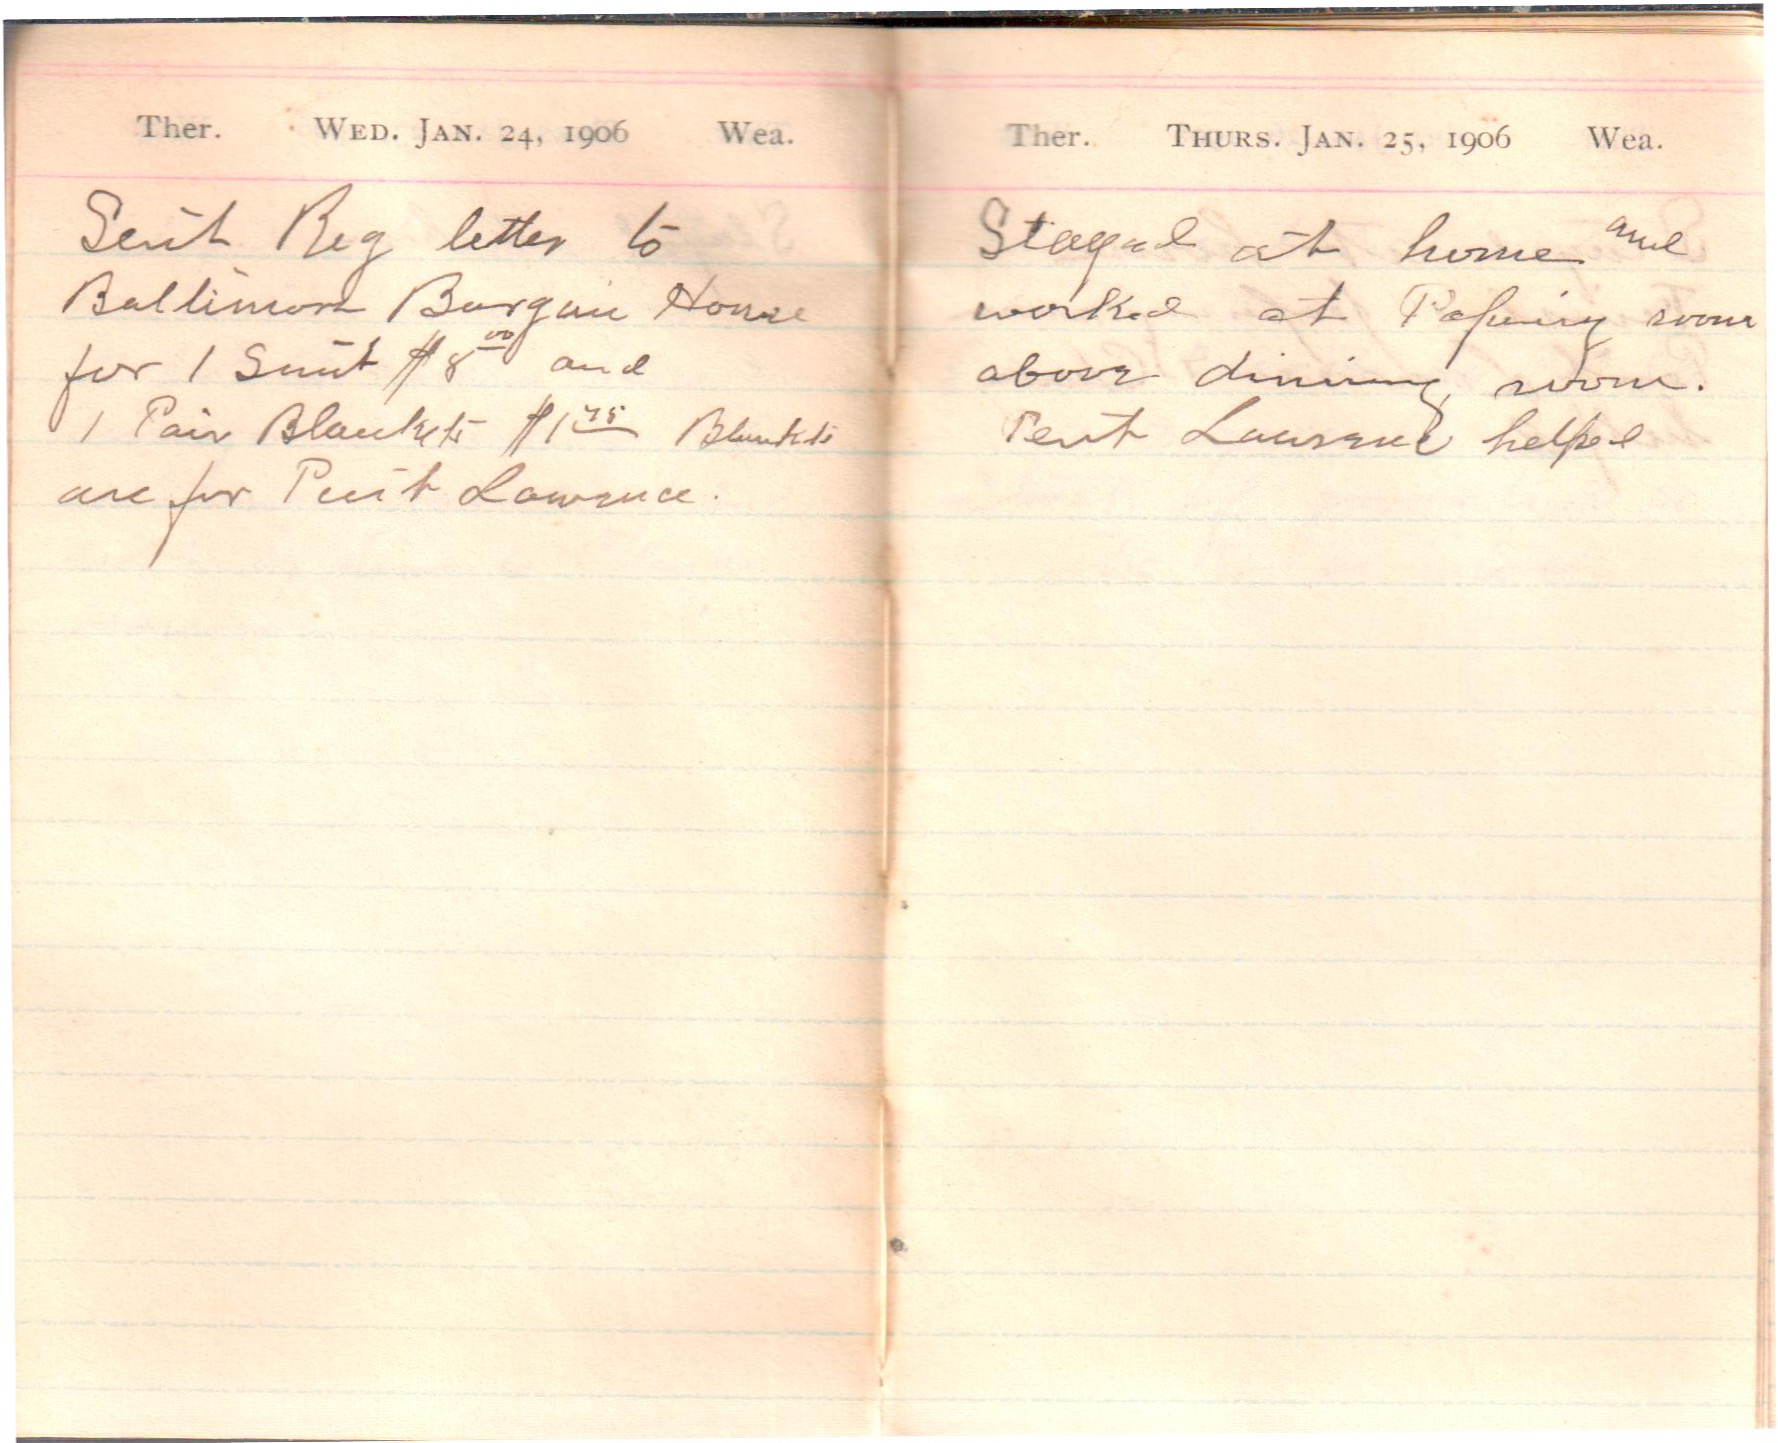 Ther. WED. JAN. 24, 1906 Wea.
Sent Reg letter to
Baltimore Bargain House
for 1 Suit $8.00 and
1 Pair Blankets $1.75 Blankets
are for Peirt Lawrence.
Ther. THURS. JAN. 25, 1906 Wea.
Stayed at home and
worked at Papering room
above dining room.
Peirt Lawrence helped